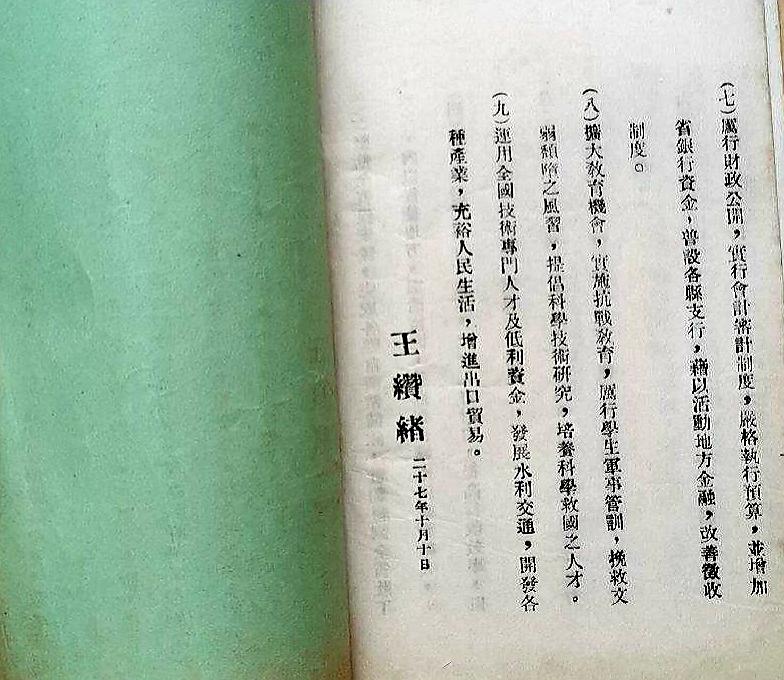 (七)厲行財政公開，實行會計審計制度，嚴格執行預算，並增加
省銀行資金，普設各縣支行，藉以活動地方金融，改善徵收
制度。
(八)擴大教育機會，實施抗戰教育，厲行學生軍事管訓，挽救文
弱頹隋之風習，提倡科學技術研究，培養科學救國之人才。
(九)運用全國技術專門人才及低利資金，發展水利交通，開發各
種產業，充裕人民生活，增進出口貿易。
王纘緒 二十七年十月十日